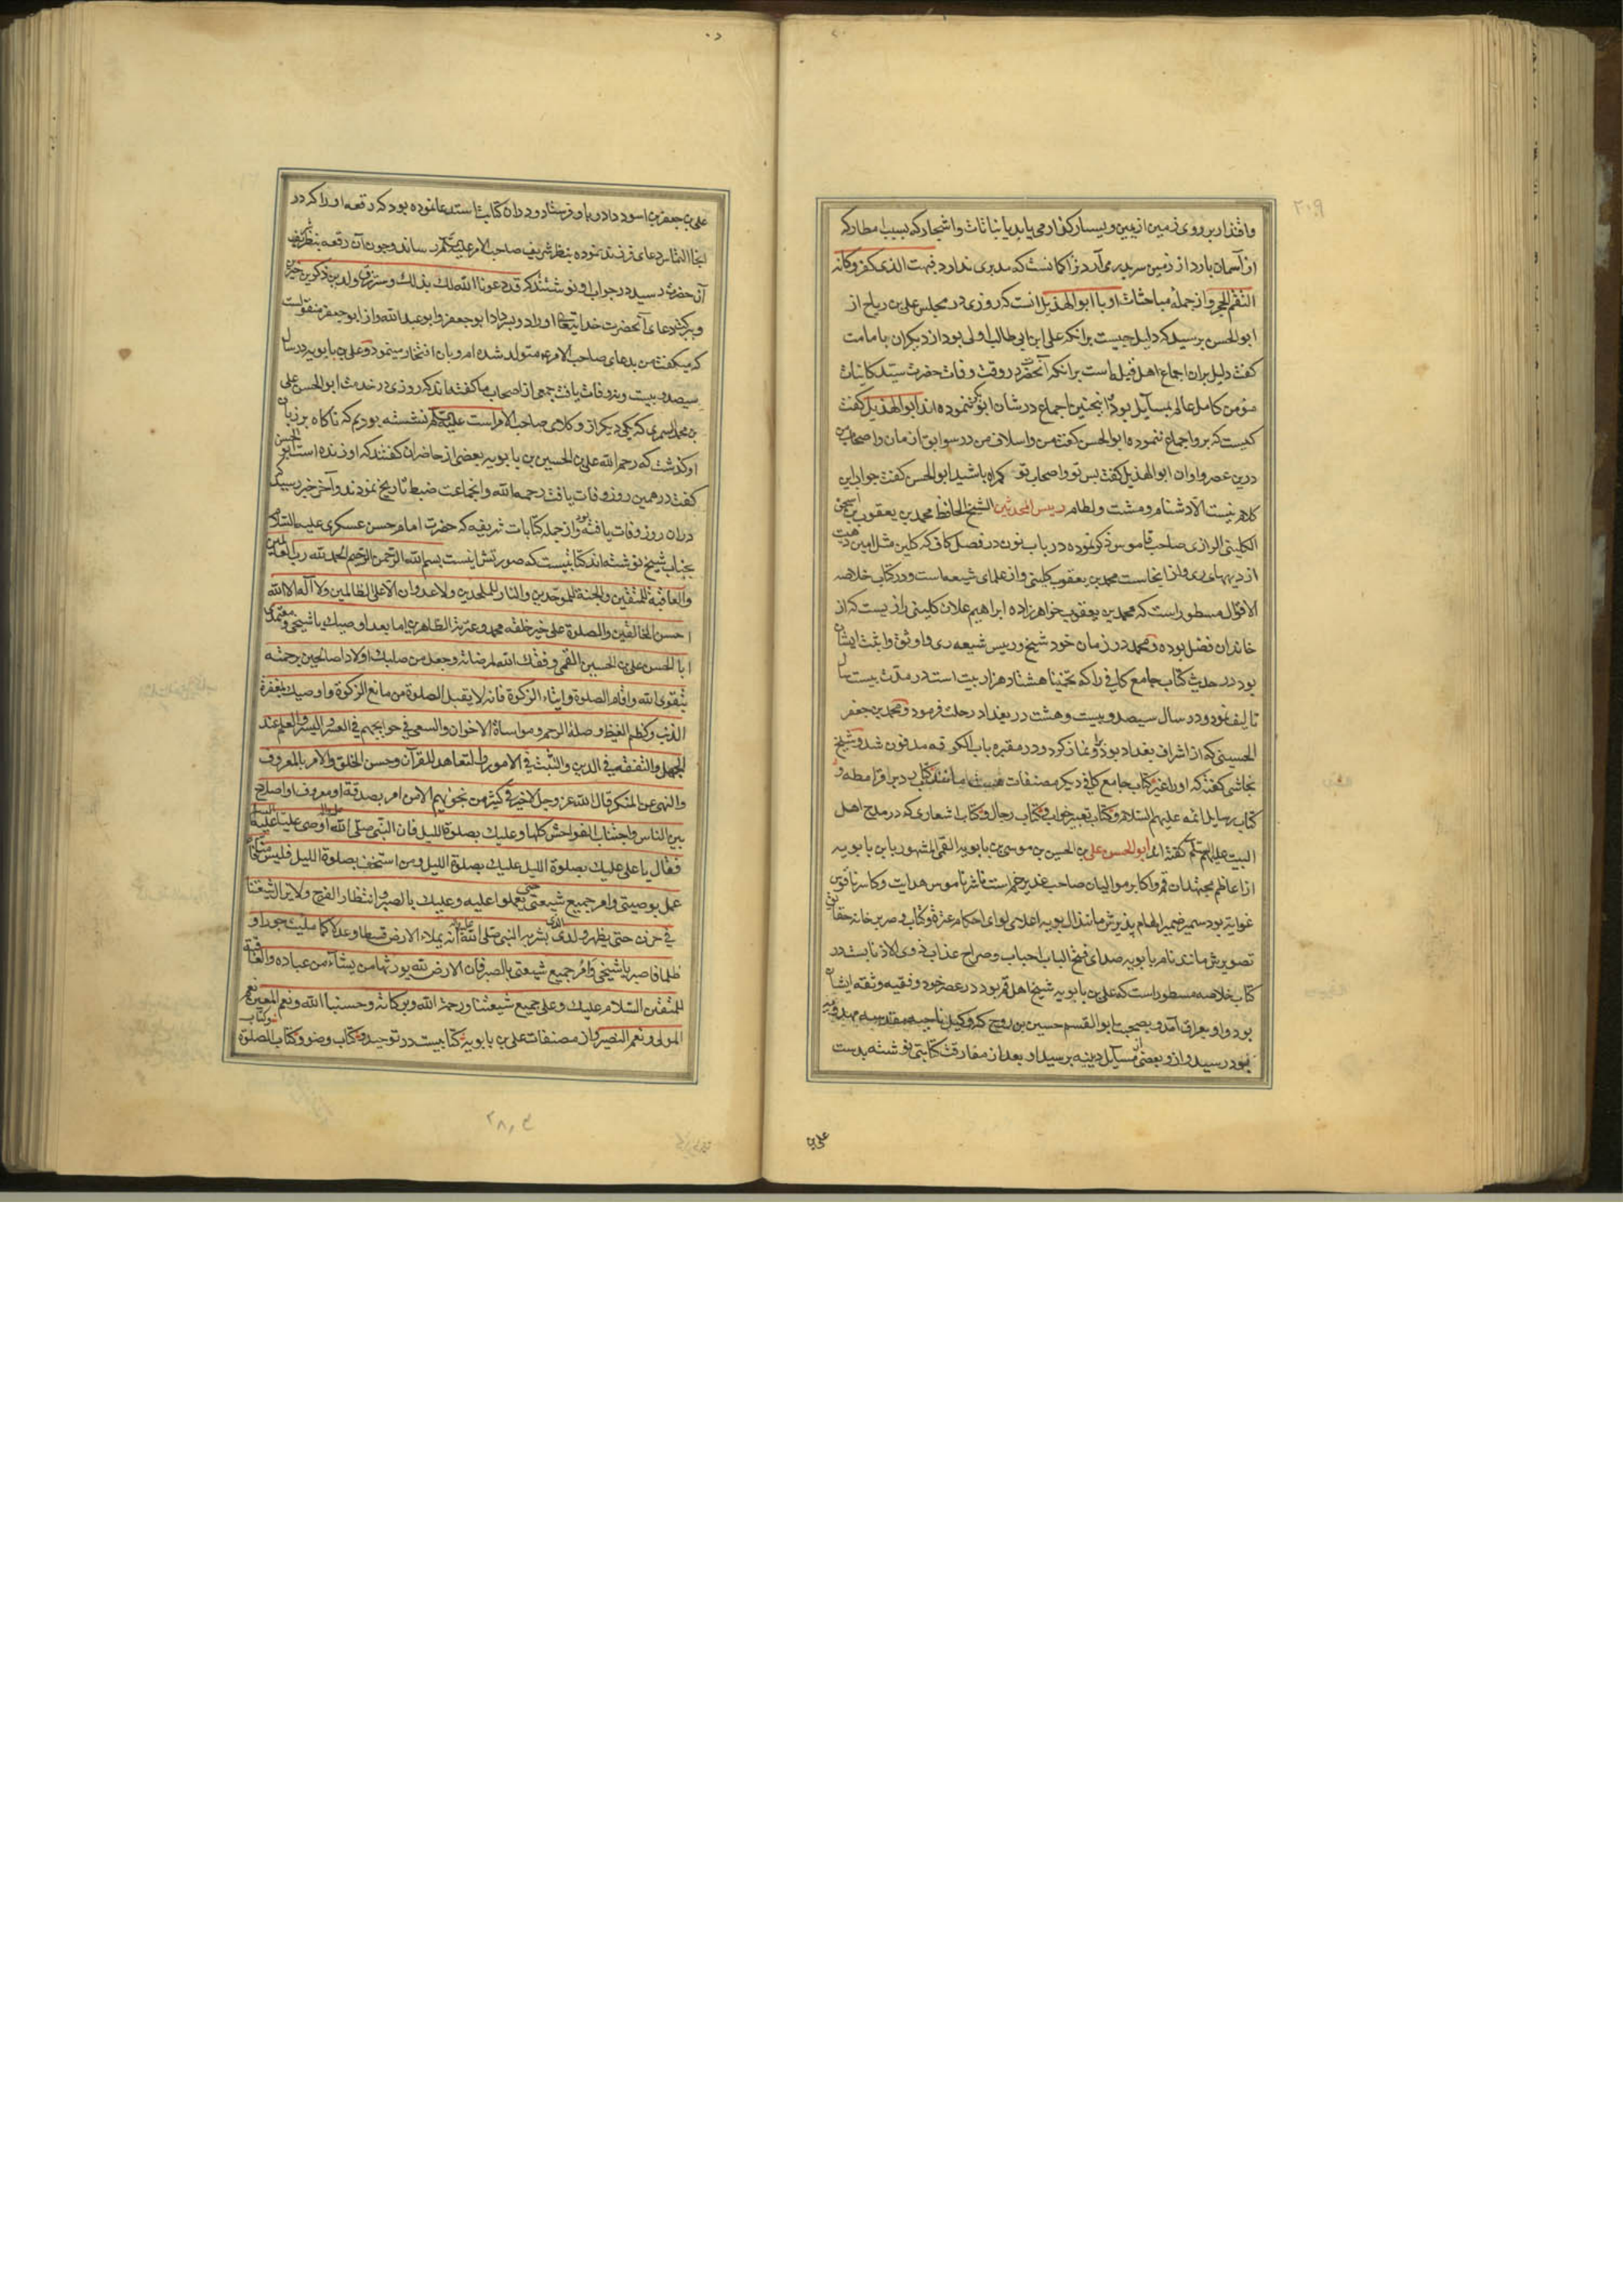 ۲۰۹
واقتدار بر روی زمین از یمین و یسار کذار می یابد یا نباتات واشجار که بسبب امطار که
از آسمان بارد از زمین سر بدر می آرد نزاکمانست که مدبری ندارد فبهت الذی کفر وکانه
التقم الحجر واز جمله مباحثات او با ابو الهذیل انست که روزی در مجلس علی بن ریاح از
ابو الحسن پرسید که دلیل چیست برانکه علی ابن ابی طالب اولی بود از دیکران بامامت
کفت دلیل بران اجماع اهل قبله است برانکه آنحضرت در وقت وفات حضرت سید کاینات
مؤمن کامل عالم بمسایل بود وانچنین اجماع در شان ابوبکر ننموده اند ابو الهذیل کفت
کیست که برو اجماع ننموده ابو الحسن کفت من واسلاف من در سوابق ازمان واصحاب من
درین عصر واوان ابو الهذیل کفت پس تو واصحاب تو کمراه باشید ابو الحسن کفت جواب این
کلام نیست الا دشنام ومشت ولطام رییس المحدثین الشیخ الحافظ محمد بن یعقوب بن اسحق
الکلینی الرازی صاحب قاموس ذکر نموده در باب نون در فصل کاف که کلین مثل امین دهیست
از دیههای ری واز اینجاست محمد بن یعقوب کلینی واز علمای شیعه است ودر کتاب خلاصه
الاقوال مسطور است که محمد بن یعقوب خواهرزاده ابراهیم علان کلینی رازیست که از
خاندان فضل بوده ومحمد در زمان خود شیخ ورییس شیعه ری واوثق واثبت ایشان
بود در حدیث کتاب جامع کافی را که تخمینا هشتاد هزار بیت است در مدت بیست سال
تالیف نمود ودر سال سیصد وبیست وهشت در بغداد رحلت فرمود ومحمد بن جعفر
الحسینی که از اشراف بغداد بود برو نماز کرد ودر مقبره باب الکوفه مدفون شد وشیخ
نجاشی کفته که او را غیر کتاب جامع کافی دیکر مصنفات هست مانند کتاب رد بر قرامطه و
کتاب رسایل ائمه علیهم السلام وکتاب تعبیر خواب وکتاب رجال وکتاب اشعاری که در مدح اهل
البیت علیهم السلم کفته اند ابو الحسن علی بن الحسین بن موسی بن بابویه القمی المشهور بابن بابویه
از اعاظم مجتهدان قم واکابر موالیان صاحب غدیر خم است ناشر ناموس هدایت وکاسر ناقوس
غوایة بود سمیر ضمیر الهام پذیرش مانند ال بویه اعلای لوای احکام عترة وکتاب وصریر خانه حقایق
تصویرش مانند نام بابویه صدای فتح الباب احباب وصراح عذاب ذوی الاذناب است در
کتاب خلاصه مسطور است که علی بن بابویه شیخ اهل قم بود در عصر خود وفقیه وثقه ایشان
بود واو بعراق آمد وبصحبت ابو القسم حسین بن روح که وکیل ناحیه مقدسه مهدویه
بود رسید واز وبعضی از مسایل دینیه پرسید اورا بعد از مفارقت کتابتی نوشته بدست
علی بن
علی بن جعفر بن اسود داد وباو فرستاد ودران کتابت استدعا نموده بود که رقعه اورا که در
انجا التماس دعای فرزند نموده بنظر شریف صاحب الامر علیه السلم رساند وچون آن رقعه بنظر شریف
آن حضرة رسید در جواب او نوشتند که قد دعونا الله لك بذلك وسترزق ولدین ذکرین خیرین
وببرکت دعای آنحضرت خدایتعالی اورا دو پسر داد ابو جعفر وابو عبد الله واز ابو جعفر منقولست
که میکفت من بدعای صاحب الامر ع متولد شده ام وبان افتخار مینمود وعلی بن بابویه در سال
سیصد وبیست ونه وفات یافت جمعی از اصحاب ما کفته اند که روزی در خدمت ابو الحسن علی
بن محمد السمری که یکی دیکر از وکلای صاحب الامر است علیه السلم نشسته بودیم که ناکاه بر زبان
او کذشت که رحم الله علی بن الحسین بن بابویه بعضی از حاضران کفتند که او زنده است ابو الحسن
کفت در همین روز وفات یافت رحمه الله وانجماعت ضبط تاریخ نمودند وآخر خبر رسید که
دران روز وفات یافته بود واز جمله کتابات شریفه که حضرت امام حسن عسکری علیه السلام
بجناب شیخ نوشته اند کتابتیست که صورتش اینست بسم الله الرحمن الرحیم الحمد لله رب العالمین
والعاقبة للمتقین والجنة للموحدین والنار للملحدین ولا عدوان الا علی الظالمین ولا آله الا الله
احسن الخالقین والصلوة علی خیر خلقه محمد وعترته الطاهرین اما بعد اوصیك یا شیخی ومعتمدی
ابا الحسن علی بن الحسین القمی وفقك الله لمرضاته وجعل من صلبك اولادا صالحین برحمته
بتقوی الله واقام الصلوة وایتاء الزکوة فانه لا یقبل الصلوة من مانع الزکوة واوصیك بمغفرة
الذنب وکظم الغیظ وصلة الرحم ومواساة الاخوان والسعی فی حوایجهم فی العسر والیسر والعلم عند
الجهل والتفقه فی الدین والتثبت فی الامور والتعاهد للقرآن وحسن الخلق والامر بالمعروف
والنهی عن المنکر قال الله عز وجل لا خیر فی کثیر من نجویهم الا من امر بصدقة او معروف او اصلاح
بین الناس واجتناب الفواحش کلها وعلیك بصلوة اللیل فان النبی صلی الله علیه واله اوصی علیا علیه السلم
فقال یا علی علیك بصلوة اللیل علیك بصلوة اللیل ومن استخف بصلوة اللیل فلیس منا
عمل بوصیتی وامر جمیع شیعتی حتی یعملوا علیه وعلیك بالصبر وانتظار الفرج ولا یزال شیعتنا
فی حزن حتی یظهر ولدی الذی بشر به النبی صلی الله علیه واله انه یملاء الارض قسطا وعدلا کما ملیت جورا و
ظلما فاصبر یا شیخی وامر جمیع شیعتی بالصبر فان الارض لله یورثها من یشاء من عباده والعاقبة
للمتقین السلام علیك وعلی جمیع شیعتنا ورحمة الله وبرکاته وحسبنا الله ونعم المعین نعم
المولی ونعم النصیر واز مصنفات علی بن بابویه کتابیست در توحید وکتاب وضو وکتاب الصلوة
وکتاب